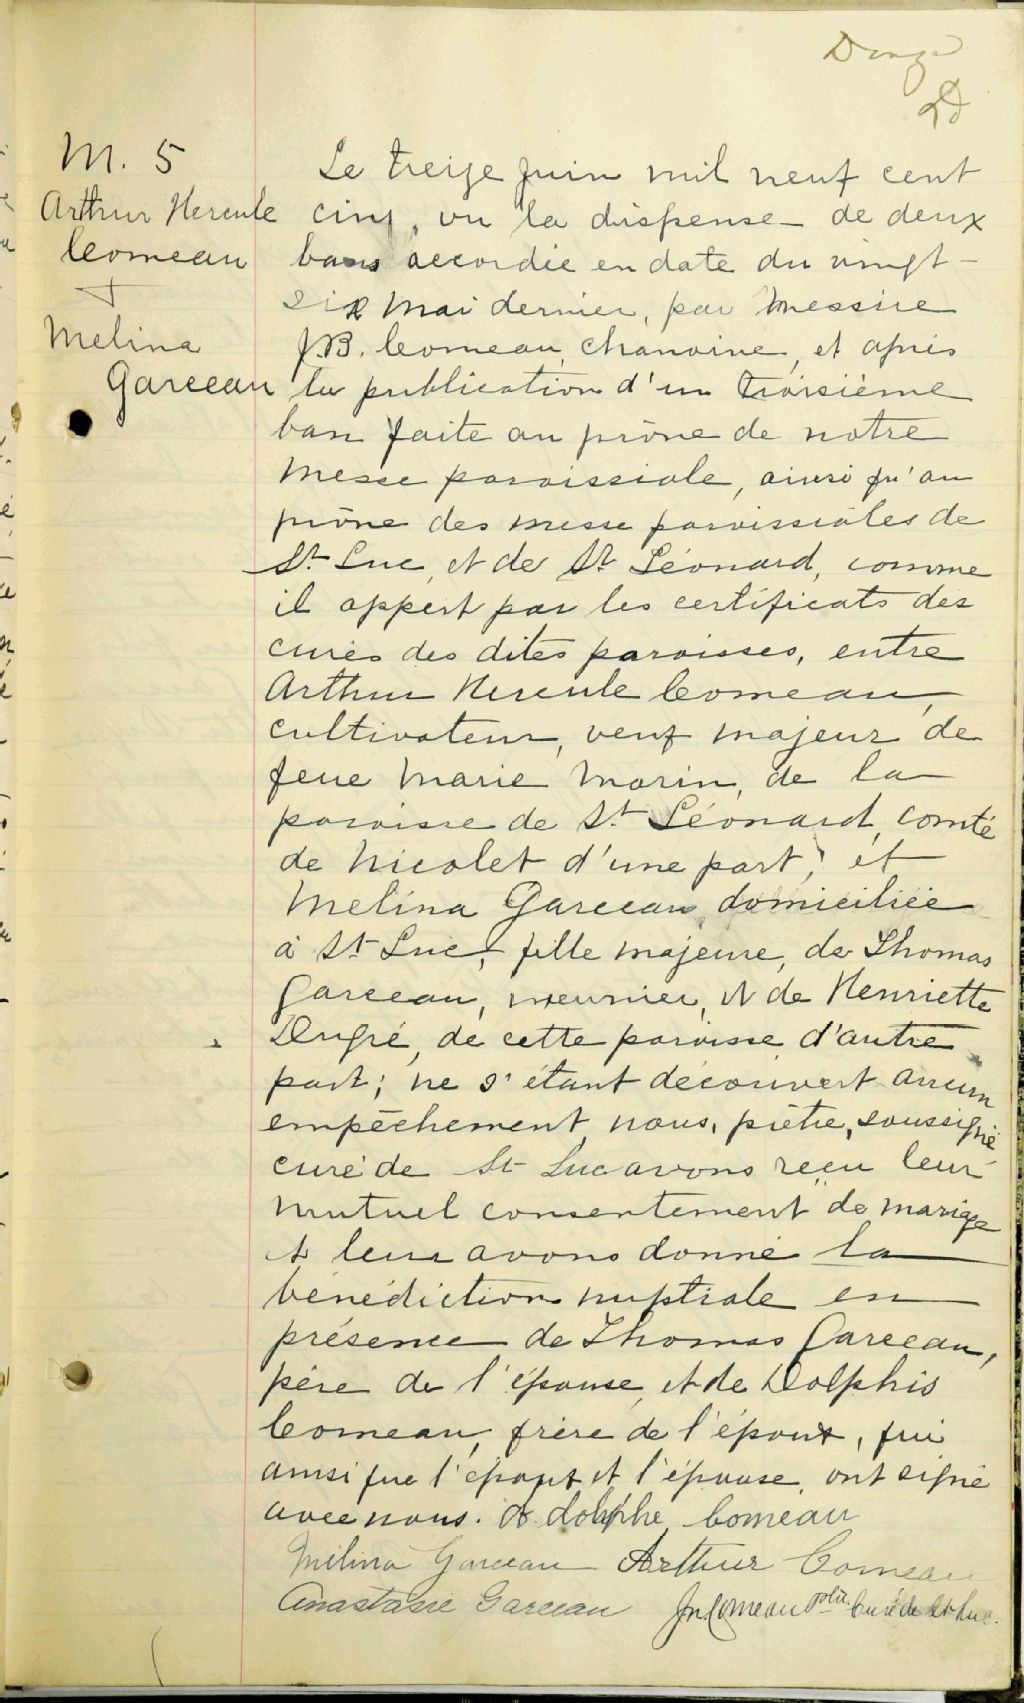 Douze
M. 5
Arthur Hercule
Comeau
+
Melina
Garceau
Le treize Juin mil neuf cent
cinq, vu la dispense de deux
bans accordée en date du vingt-
six Mai dernier, par Messire
J.B. Comeau, chanoine, et après
la publication d'un troisième
ban faite au prône de notre
Messe paroissiale, ainsi qu'au
prône des messe paroissiales de
St Luc, et de St Léonard, comme
il appert par les certificats des
curés des dites paroisses, entre
Arthur Hercule Comeau,
cultivateur, veuf majeur de
feue Marie Morin, de la
paroisse de St Léonard, comté
de Nicolet d'une part; et
Melina Garceau, domiciliée
à St Luc, fille majeure, de Thomas
Garceau, meunier, et de Henriette
Dugré, de cette paroisse, d'autre
part; ne s'étant découvert aucun
empêchement, nous, prêtre, soussigné
curé de St Luc avons reçu leur
mutuel consentement de mariage
et leur avons donné la
bénédiction nuptiale en
présence de Thomas Garceau,
père de l'épouse, et de Dolphis
Comeau, frère de l'époux, qui
ainsi que l'époux et l'épouse, ont signé
avec nous. Adolphe Comeau
Mélina Garceau Arthur Comeau
Anastasie Garceau Jn. Comeau ptre. Curé de St Luc.